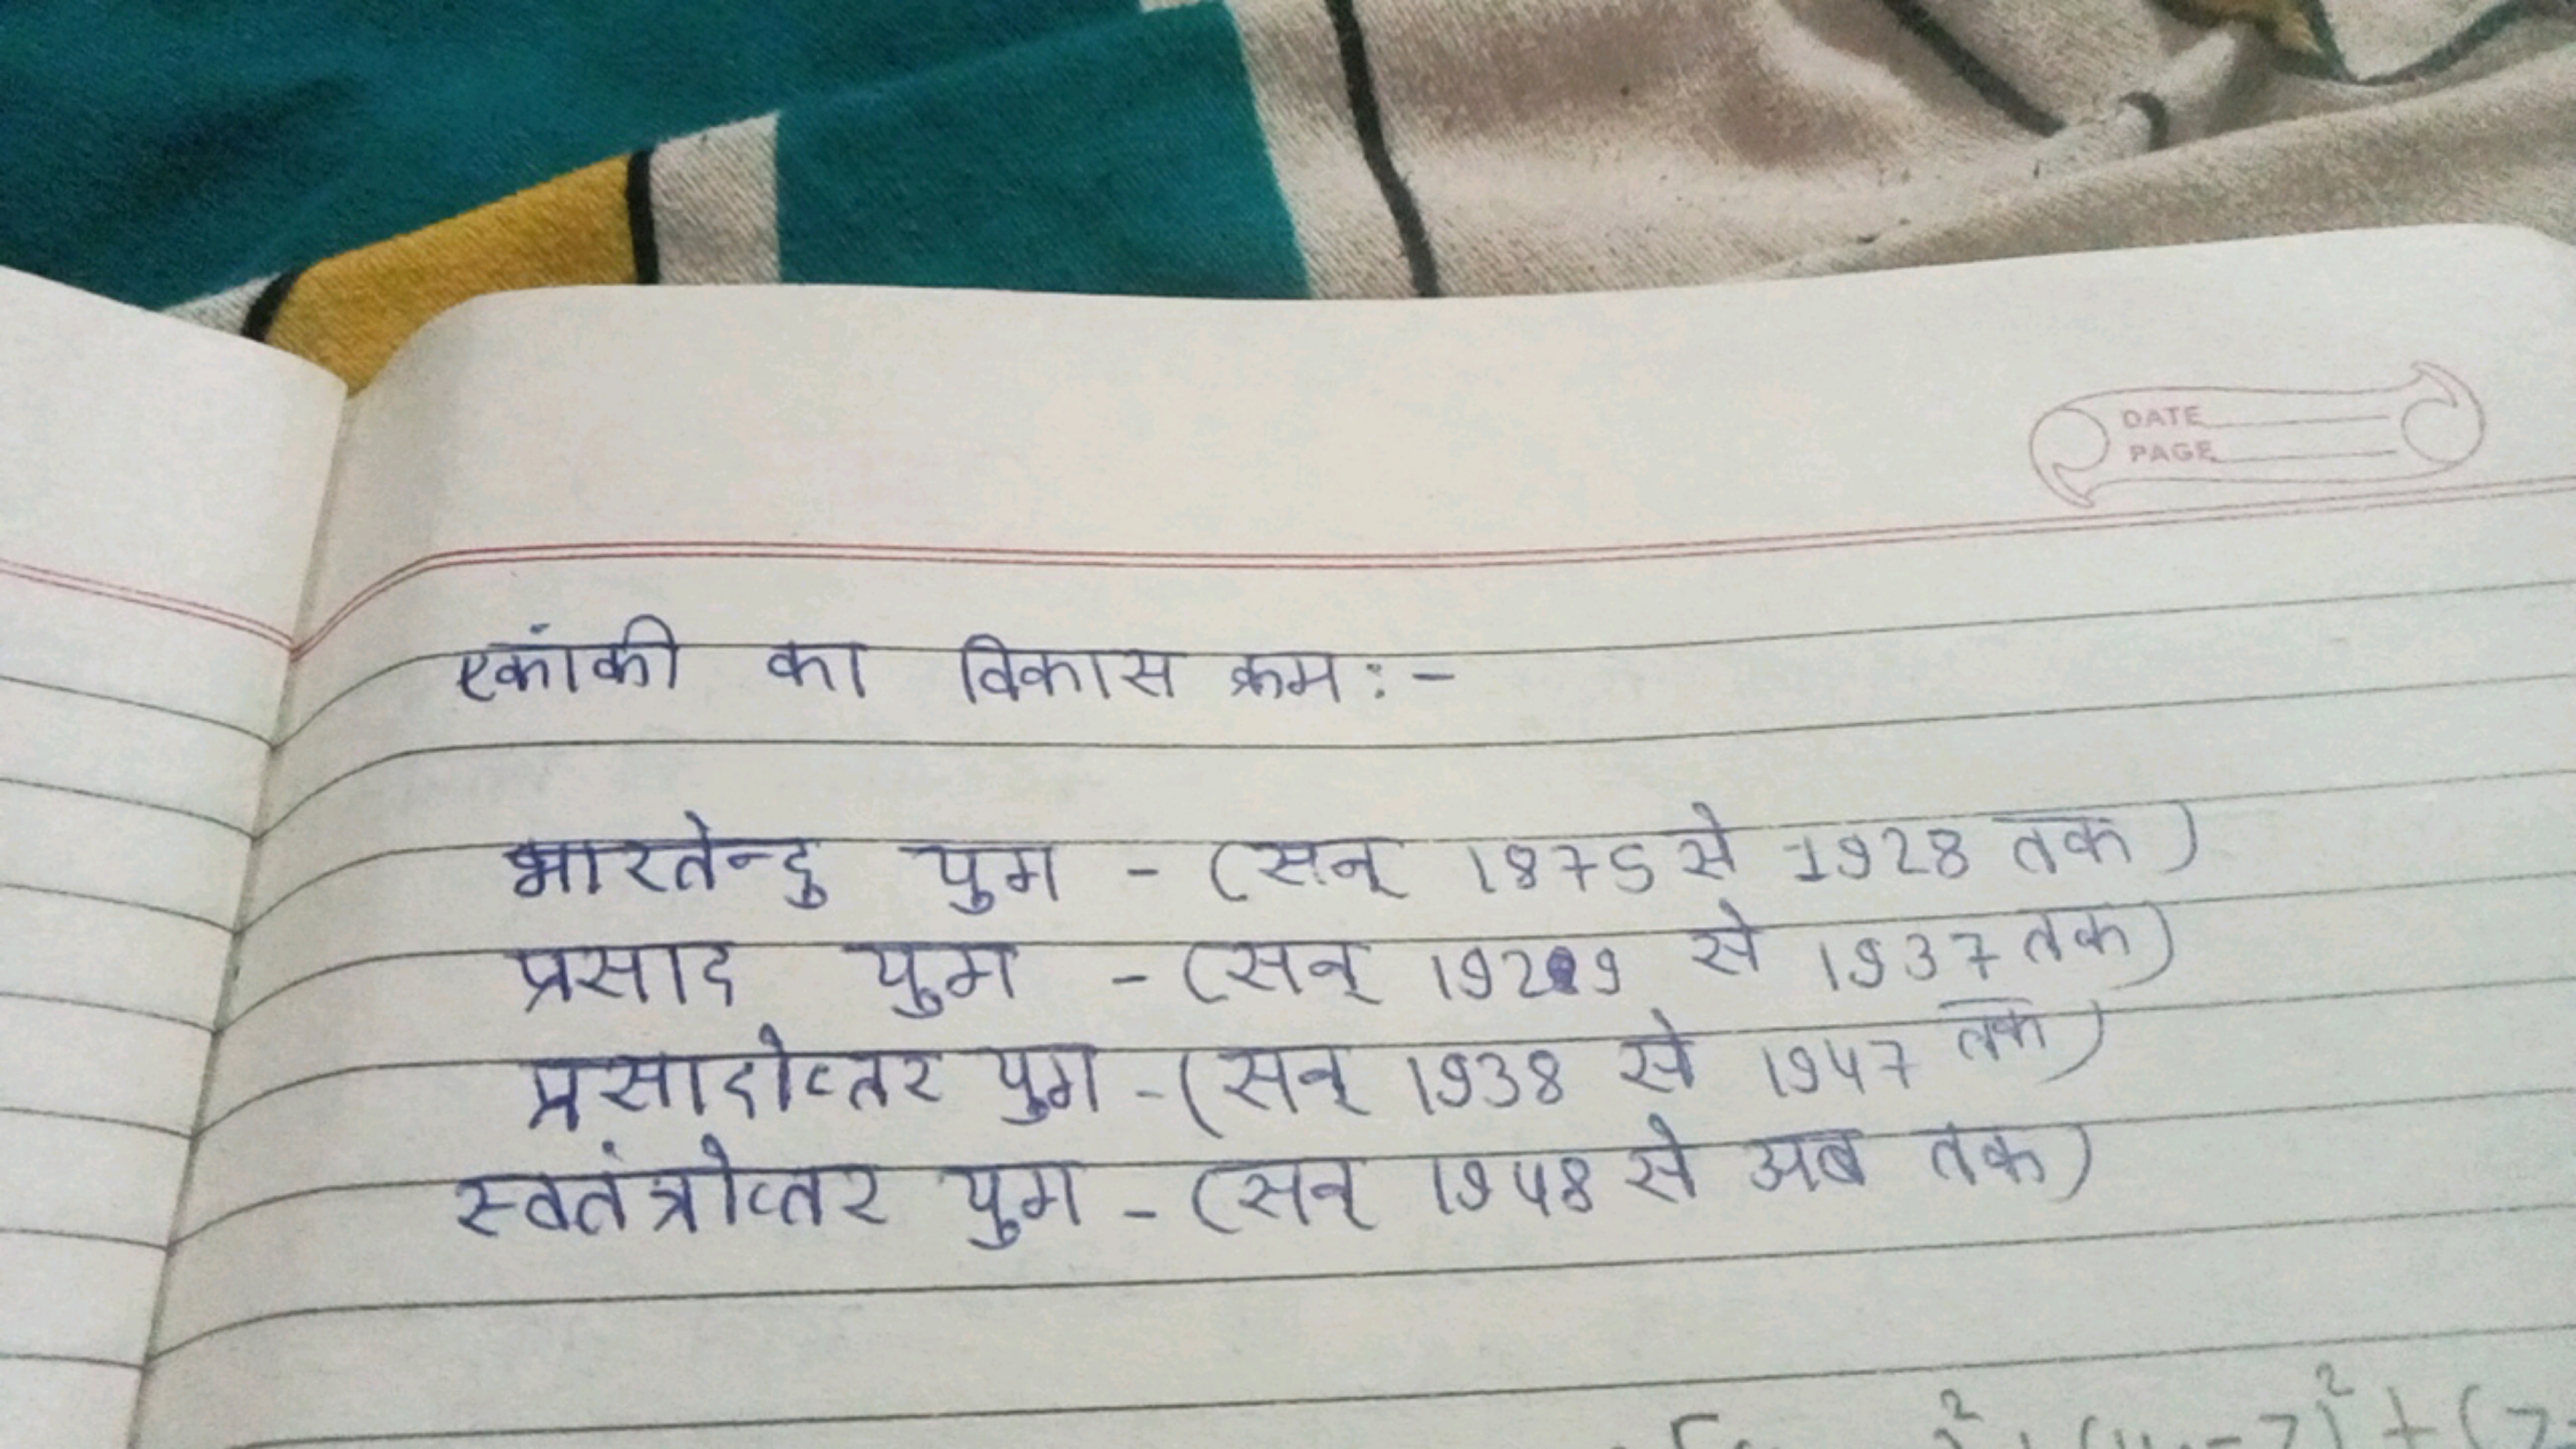 DATE
PAGE
एकांकी का विकास क्रम :-
भारतेन्दु युग - (सन् 1875 से 1928 तक)
प्रसाद युग - (सन् 1929 से 1937 तक)
प्रसादोत्तर युग - (सन् 1938 से 1947 तक)
स्वतंत्रोत्तर युग - (सन् 1948 से अब तक)